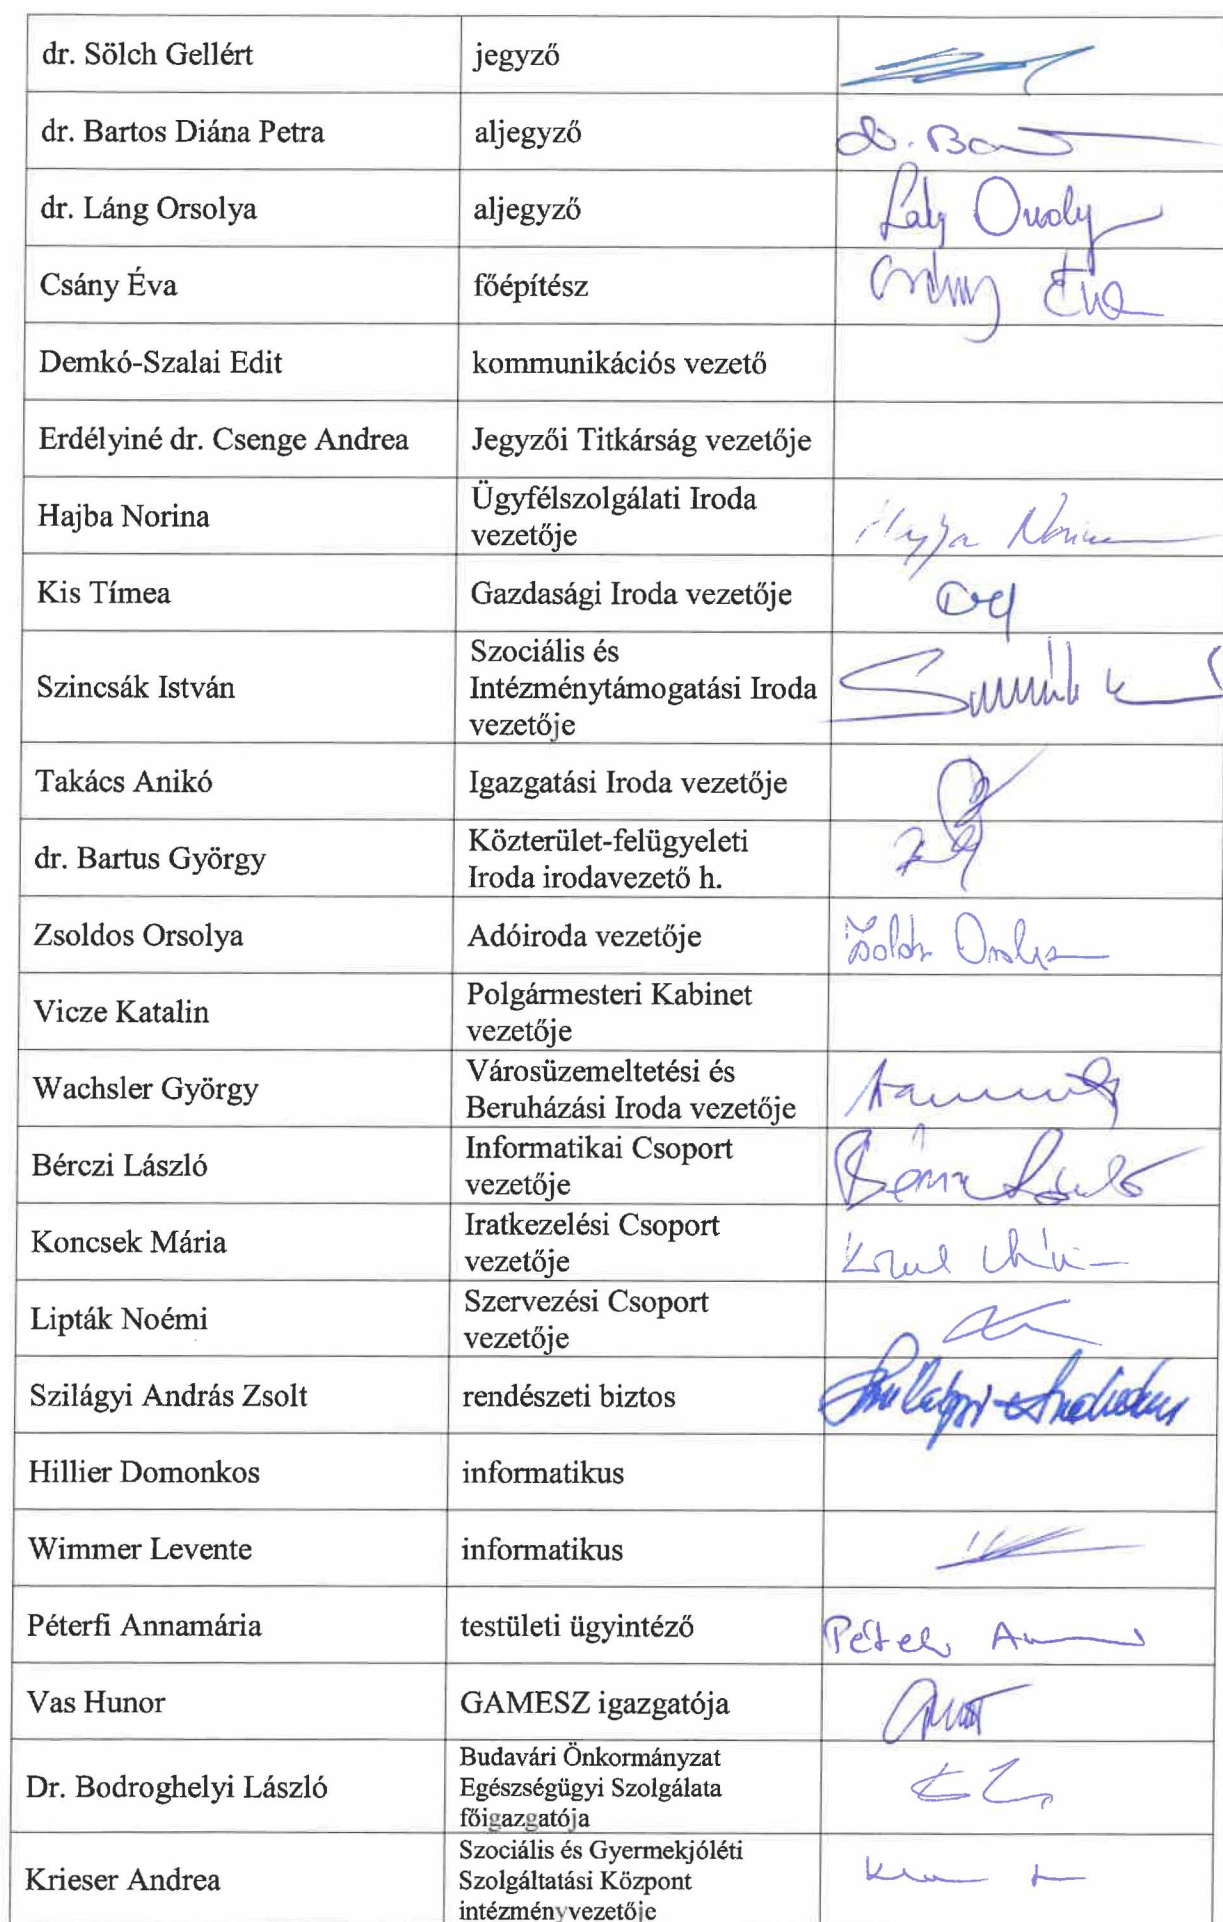 dr. Sölch Gellért
jegyző
dr. Bartos Diána Petra
aljegyző
dr. Ba
dr. Láng Orsolya
aljegyző
Csány Éva
főépítész
Éva
Demkó-Szalai Edit
kommunikációs vezető
Erdélyiné dr. Csenge Andrea
Jegyzői Titkárság vezetője
Hajba Norina
Ügyfélszolgálati Iroda
vezetője
Kis Tímea
Gazdasági Iroda vezetője
Szincsák István
Szociális és
Intézménytámogatási Iroda
vezetője
Takács Anikó
Igazgatási Iroda vezetője
dr. Bartus György
Közterület-felügyeleti
Iroda irodavezető h.
Zsoldos Orsolya
Adóiroda vezetője
Vicze Katalin
Polgármesteri Kabinet
vezetője
Wachsler György
Városüzemeltetési és
Beruházási Iroda vezetője
Bérczi László
Informatikai Csoport
vezetője
Koncsek Mária
Iratkezelési Csoport
vezetője
Lipták Noémi
Szervezési Csoport
vezetője
Szilágyi András Zsolt
rendészeti biztos
Hillier Domonkos
informatikus
Wimmer Levente
informatikus
Péterfi Annamária
testületi ügyintéző
Vas Hunor
GAMESZ igazgatója
Dr. Bodroghelyi László
Budavári Önkormányzat
Egészségügyi Szolgálata
főigazgatója
Krieser Andrea
Szociális és Gyermekjóléti
Szolgáltatási Központ
intézményvezetője